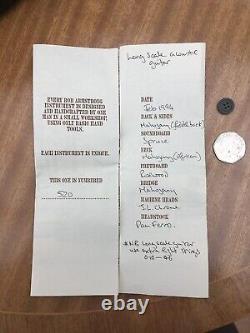 EVERY ROB ARMSTRONG
INSTRUMENT IS DESIGNED
AND HANDCRAFTED BY ONE
MAN IN A SMALL WORKSHOP,
USING ONLY BASIC HAND
TOOLS.
EACH INSTRUMENT IS UNIQUE.
THIS ONE IS NUMBERED
520
Long Scale acoustic
guitar
DATE
Feb 1994
BACK & SIDES
Mahogany
SOUNDBOARD
Spruce
NECK
Mahogany
FRETBOARD
Rosewood
BRIDGE
Mahogany
MACHINE HEADS
Chrome
HEADSTOCK
Pau Ferro
NB Long scale guitar
use extra light strings